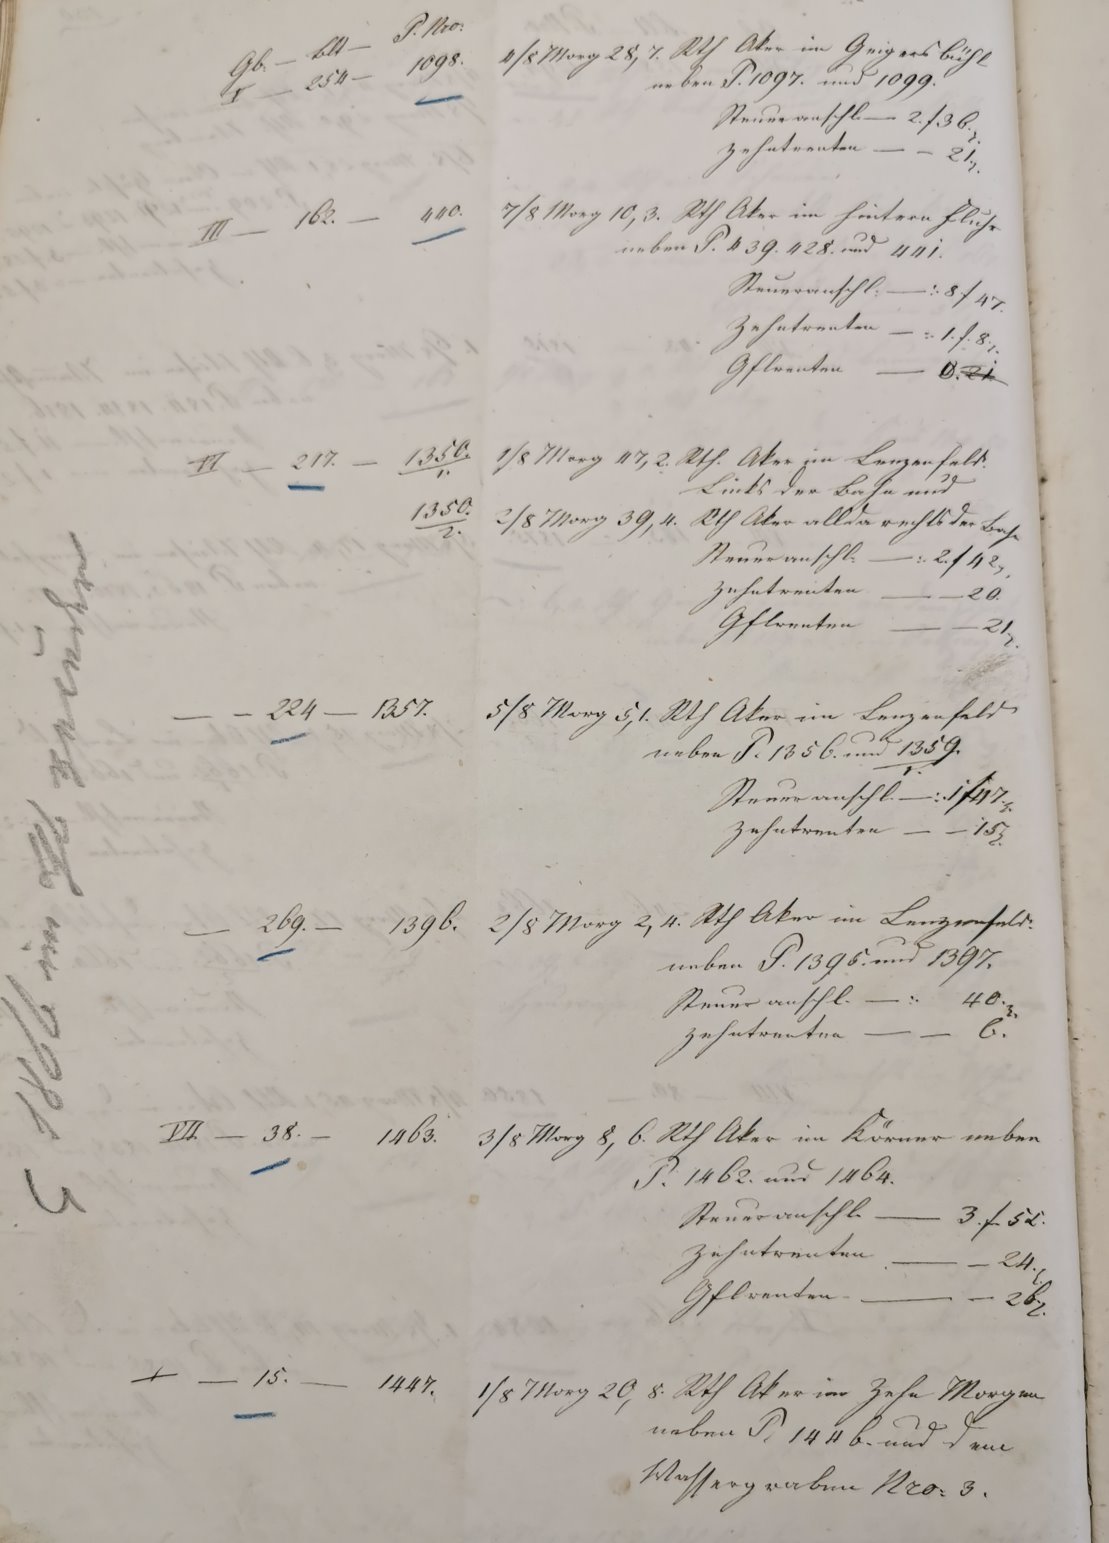 Gb. — Bll — P. Nro:
I — 254 — 1098. 4/8 Morg 28,7. Rth Aker im Geigersbühl
neben P. 1097. und 1099.
Steueranschl. — 2. f 36.
Zehntrenten — — 21.
III — 162. — 440. 7/8 Morg 10,3. Rth Aker im hintern Fluhr
neben P. 439. 428. und 441.
Steueranschl. — : 8 f 47.
Zehntrenten — : 1. f. 8.
Gflrenten — 0. 21
VI — 217. — 1350./1. 1/8 Morg 47,2. Rth. Aker im Lenzenfeld.
Links der Bahn und
1350./2. 2/8 Morg 39,4. Rth Aker allda rechts der Bahn
Steueranschl. — : 2. f 42.
Zehntrenten — — 20.
Gflrenten — — 21.
— — 224 — 1357. 5/8 Morg 5,1. Rth Aker im Lenzenfeld
neben P. 1356. und 1359./1.
Steueranschl. — : 1 f 47.
Zehntrenten — — 15
— 269. — 1396. 2/8 Morg 2,4. Rth Aker im Lenzenfeld.
neben P. 1395. und 1397.
Steueranschl. — : 40.
Zehntrenten — — 6.
VII. — 38. — 1463. 3/8 Morg 8,6. Rth Aker im Körner neben
P. 1462. und 1464.
Steueranschl. — 3. f 52.
Zehntrenten — — 24.
Gflrenten — — 26.
+ — 15. — 1447. 1/8 Morg 20,8. Rth Aker im Zehn Morgen
neben P. 1446. und dem
Wassergraben Nro: 3.
1866 im